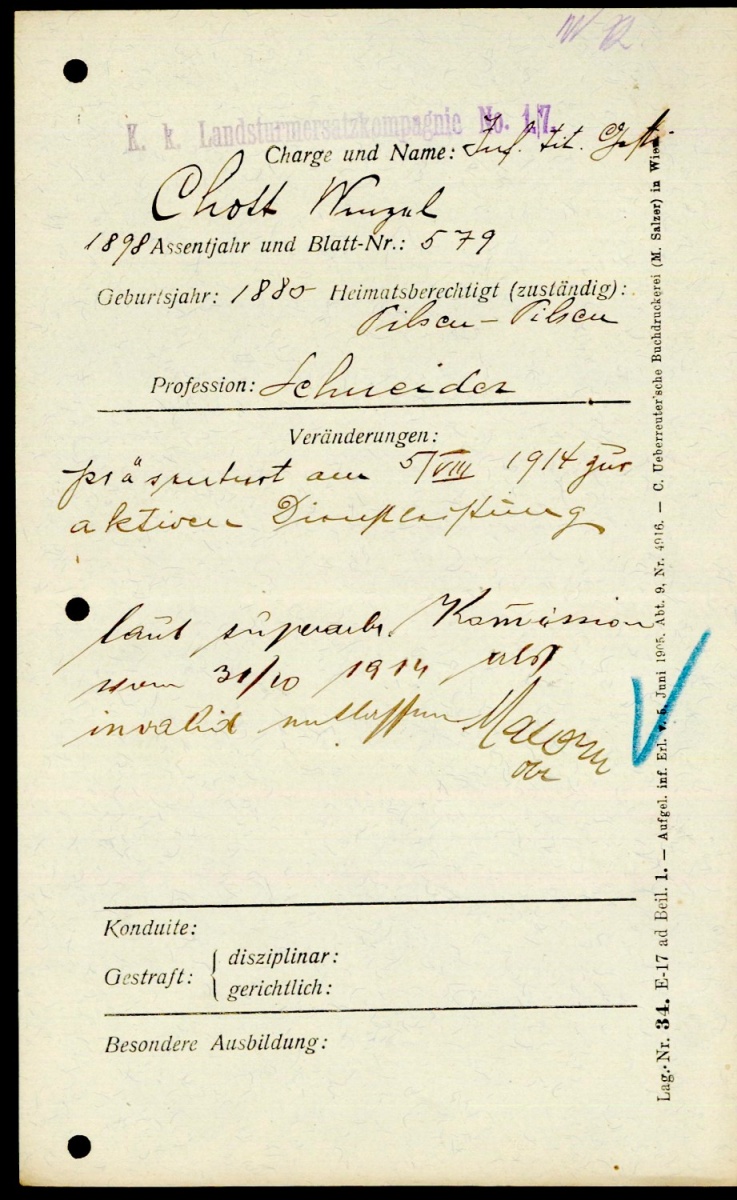 K. k. Landsturmersatzkompagnie No. 17.
Charge und Name: Inf. tit. Gfti.
Chott Wenzel
1898 Assentjahr und Blatt-Nr.: 579
Geburtsjahr: 1880 Heimatsberechtigt (zuständig):
Pilsen - Pilsen
Profession: Schneider
Veränderungen:
präsentiert am 5/VIII 1914 zur
aktiven Dienstleistung
laut superarb. Kommission
vom 31/10 1914 als
invalid entlassen
Konduite:
Gestraft: { disziplinar:
gerichtlich:
Besondere Ausbildung:
Lag.-Nr. 34. E-17 ad Beil. 1. — Aufgel. inf. Erl. v. 5. Juni 1905. Abt. 9, Nr. 4916. — C. Ueberreuter'sche Buchdruckerei (M. Salzer) in Wien.